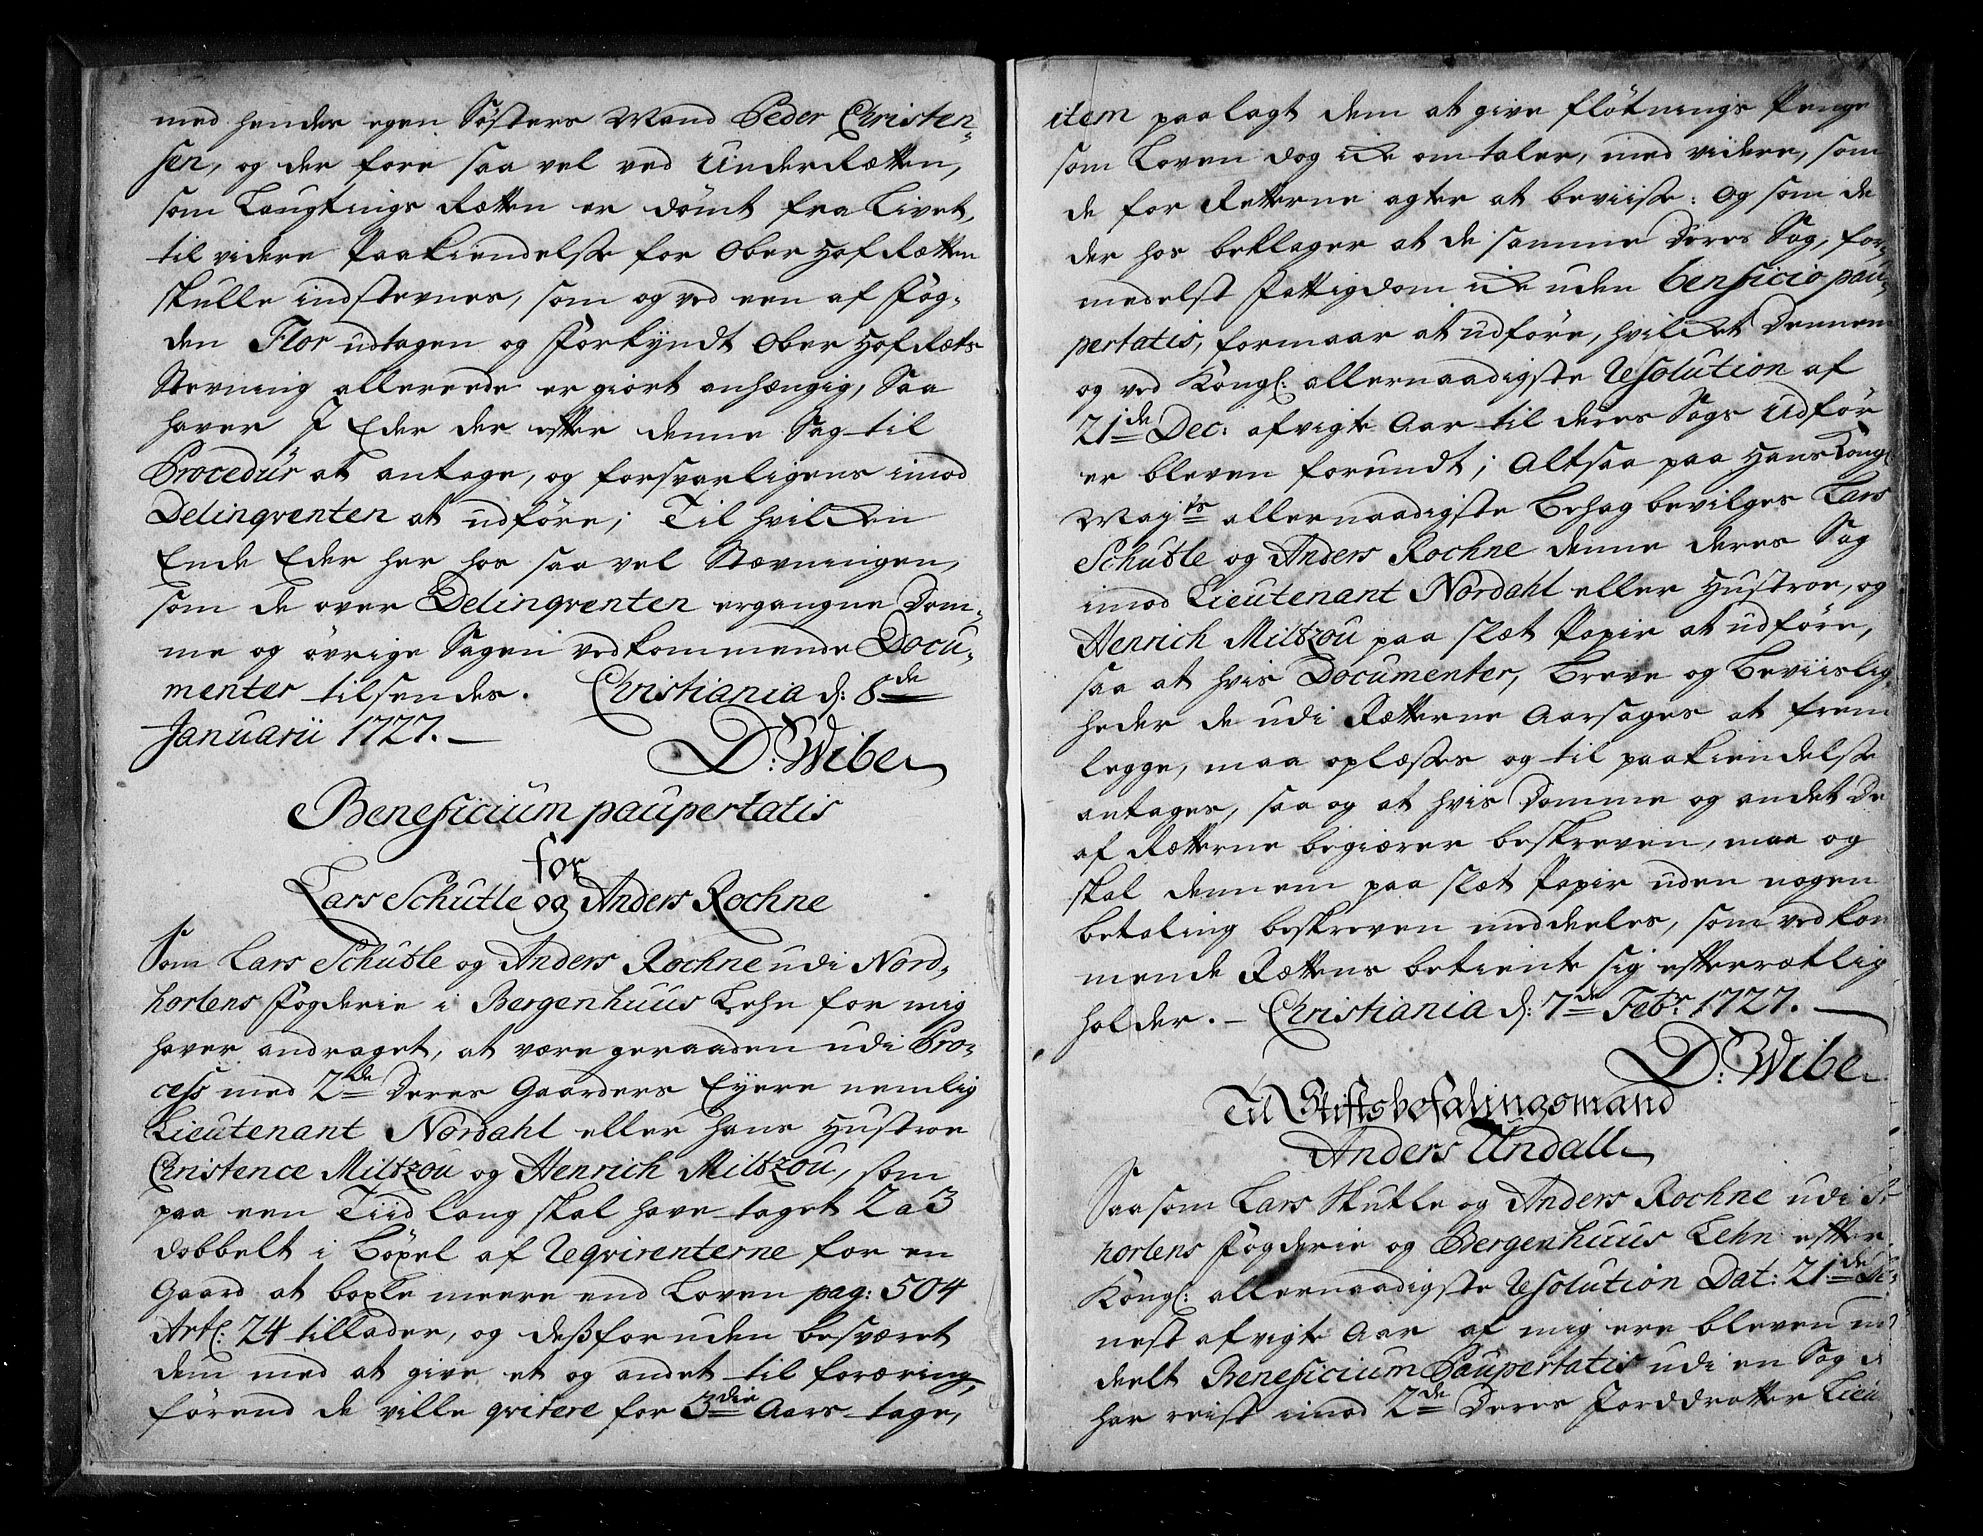 med hendes egen Søsters Mand Peder Christen-
sen, og der fore saa vel ved UnderRætten,
som Laugtings Rætten er dømt fra Livet,
til videre Paakiendelse for Ober Hof Rætten
skulle indstevnes, som og ved een af Fog-
den Flor udtagen og Forkyndt Ober Hof Rets
Stevning allereede er giort anhængig, Saa
haver I Eder der efter denne Sag til
Procedur at antage, og forsvarligens imod
Delinqventen at udføre; Til hvilcken
Ende Eder her hos saa vel Stævningen,
som de over Delinqventen ergangne Dom-
me og øvrige Sagen vedkommende Docu-
menter tilsendes. Christiania d: 8de
Januarii 1727.
D: Wibe
Beneficium paupertatis
for
Lars Schutle og Anders Rochne
Som Lars Schutle og Anders Rochne udi Nord-
hortens Fogderie i Bergenhuus Lehn for mig
haver andraget, at være geraaden udi Pro-
cess med 2de Deres Gaarders Eyere nemlig
Lieutenant Nordahl eller hans Hustroe
Christence Miltzou og Henrich Miltzou, som
paa een Tiid lang skal have taget 2 a 3
dobbelt i Böxel af Reqvirenterne for en
Gaard atböxle meere end Loven pag: 504
Artl: 24 tillader, og desforuden besværet
dem med at give et og andet til foræring,
førend de ville qvitere for 3die Aars tage,
item paalagt dem at give fløtnings Penge
som Loven dog icke omtaler, med videre, som
de for Retterne agter at beviise: Og som de
der hos beklager at de samme Deres Sag, for-
medelst Fattigdom icke uden beneficio pau-
pertatis, formaar at udføre, hvilcket Dennem
og ved Kongl: allernaadigste Resolution af
21de Dec: afvigte Aar til deres Sags Udför
er bleven forundt; Altsaa paa Hans Kongl
Mayts allernaadigste Behag bevilges Lars
Schutle og Anders Rochne denne deres Sag
imod Lieutenant Nordahl eller Hustroe, og
Henrich Miltzou paa slæt Papir at udføre,
saa at hvis Documenter, Breve og Beviislig-
heder de udi Rætterne Aarsages at frem
legge, maa oplæses og til paakiendelse
antages, saa og at hvis Domme og andet De
af Rætterne begiærer beskreven, maa og
skal dennem paa slæt Papir uden nogen
betaling beskreven meddeeles, som vedkom
mende Rættens betiente sig efterretlig
holder. – Christiania d: 7de Febr: 1727.
D: Wibe
Til Stiftsbefalingsmand
Anders Undall
Saasom Lars Skutle og Anders Rochne udi
hortens Fogderie og Bergenhuus Lehn efter
Kongl: allernaadigste Resolution Dat: 21de De-
nest afvigte Aar af mig ere bleven
deelt Beneficium Paupertatis udi en Sag
har reist imod 2de Deres Jorddrotter Lieu